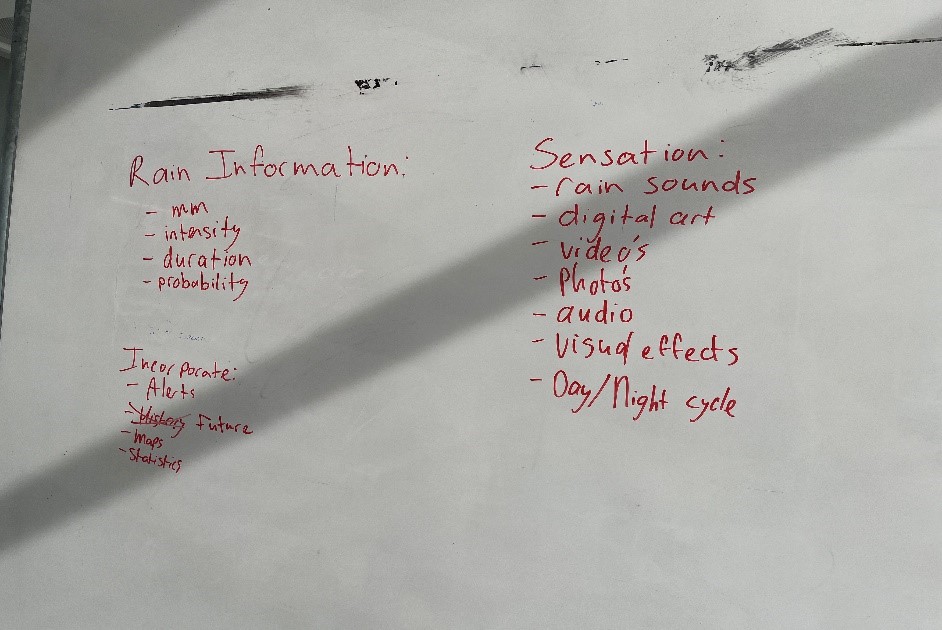 Rain Information:
- mm
- intensity
- duration
- probability
Incorporate:
- Alerts
- History future
- maps
- Statistics
Sensation:
- rain sounds
- digital art
- video's
- Photo's
- audio
- Visual effects
- Day/Night cycle